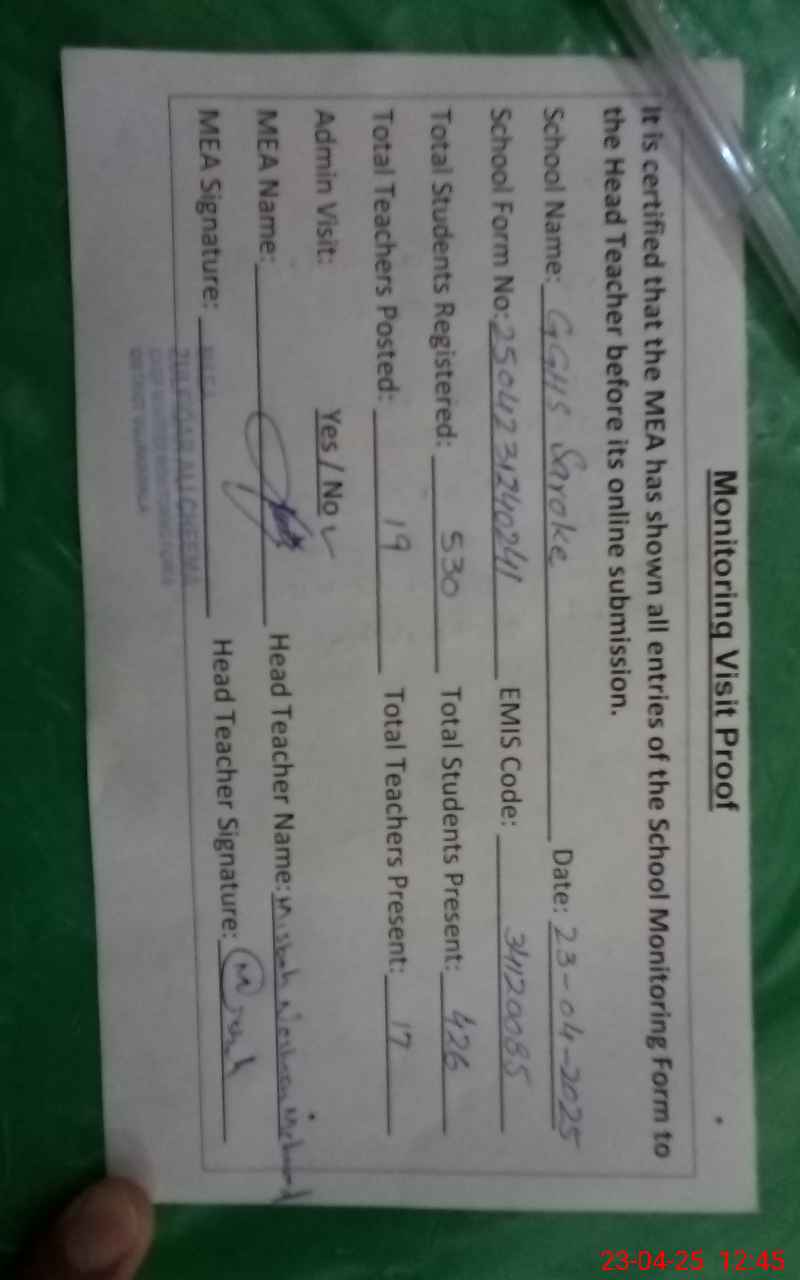 Monitoring Visit Proof
It is certified that the MEA has shown all entries of the School Monitoring Form to
the Head Teacher before its online submission.
School Name: GGHS Saroke Date: 23-04-2025
School Form No: 25042331240241 EMIS Code: 34120085
Total Students Registered: 530 Total Students Present: 426
Total Teachers Posted: 19 Total Teachers Present: 17
Admin Visit: Yes / No ✓
MEA Name: Head Teacher Name: Misbah
MEA Signature: Head Teacher Signature: Misbah
ZULFIQAR ALI CHEEMA
23-04-25 12:45